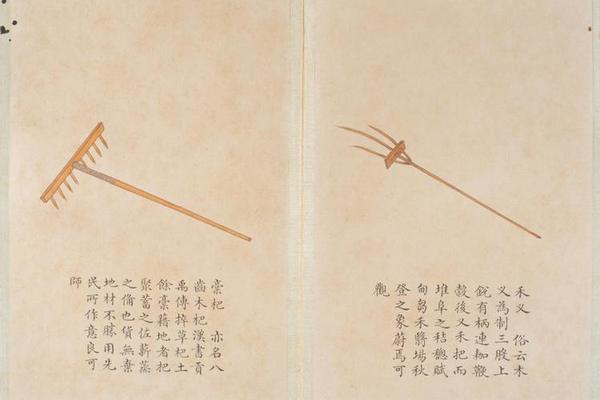 禾叉 俗云木
叉為制三股上
銳有柄連枷鞭
穀後叉禾把而
堆阜之秸穗賦
甸芻禾將場秋
登之象蔚焉可
觀
稾杷 亦名八
齒木杷漢書貢
禹傳捽草杷土
餘稾藉地者把
聚蓄之佐薪蒸
之備也貨無棄
地材不勝用先
民所作意良可
師